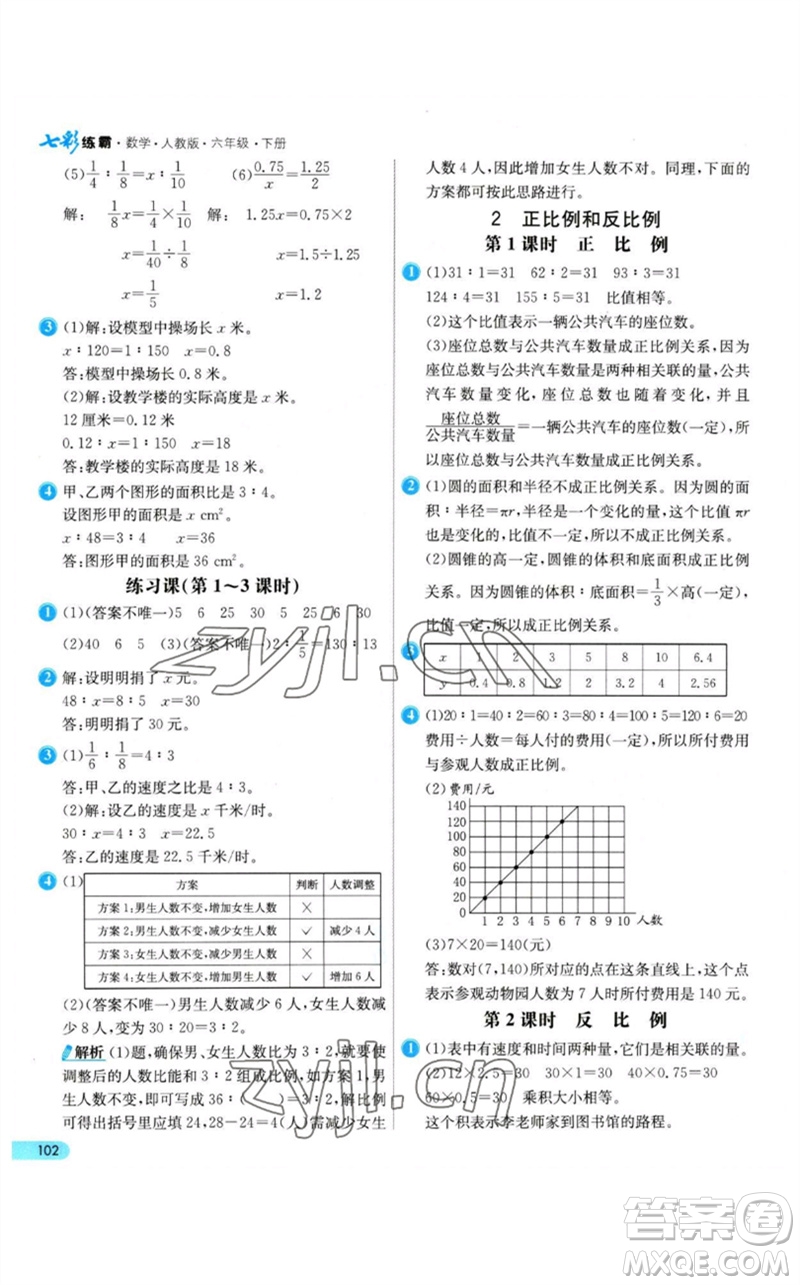 七彩练霸·数学·人教版·六年级·下册
(5)1/4∶1/8=x∶1/10 (6)0.75/x=1.25/2
解: 1/8x=1/4×1/10 解: 1.25x=0.75×2
x=1/40÷1/8 x=1.5÷1.25
x=1/5 x=1.2
3 (1)解:设模型中操场长 x 米。
x∶120=1∶150 x=0.8
答:模型中操场长 0.8 米。
(2)解:设教学楼的实际高度是 x 米。
12 厘米=0.12 米
0.12∶x=1∶150 x=18
答:教学楼的实际高度是 18 米。
4 甲、乙两个图形的面积比是 3∶4。
设图形甲的面积是 x cm²。
x∶48=3∶4 x=36
答:图形甲的面积是 36 cm²。
练习课(第 1~3 课时)
1 (1)(答案不唯一)5 6 25 30 5 25 6 30
(2)40 6 5 (3)(答案不唯一)2∶1/5=130∶13
2 解:设明明捐了 x 元。
48∶x=8∶5 x=30
答:明明捐了 30 元。
3 (1)1/6∶1/8=4∶3
答:甲、乙的速度之比是 4∶3。
(2)解:设乙的速度是 x 千米/时。
30∶x=4∶3 x=22.5
答:乙的速度是 22.5 千米/时。
4 (1)
方案 判断 人数调整
方案 1:男生人数不变,增加女生人数 ×
方案 2:男生人数不变,减少女生人数 √ 减少 4 人
方案 3:女生人数不变,减少男生人数 ×
方案 4:女生人数不变,增加男生人数 √ 增加 6 人
(2)(答案不唯一)男生人数减少 6 人,女生人数减
少 8 人,变为 30∶20=3∶2。
解析 (1)题,确保男、女生人数比为 3∶2,即要使
调整后的人数比能和 3∶2 组成比例,如方案 1,男
生人数不变,即可写成 36∶( )=3∶2,解比例
可得出括号里应填 24,28-24=4(人)需减少女生
102
人数 4 人,因此增加女生人数不对。同理,下面的
方案都可按此思路进行。
2 正比例和反比例
第 1 课时 正 比 例
1 (1)31∶1=31 62∶2=31 93∶3=31
124∶4=31 155∶5=31 比值相等。
(2)这个比值表示一辆公共汽车的座位数。
(3)座位总数与公共汽车数量成正比例关系。因为
座位总数与公共汽车数量是两种相关联的量,公共
汽车数量变化,座位总数也随着变化,并且
座位总数/公共汽车数量=一辆公共汽车的座位数(一定),所
以座位总数与公共汽车数量成正比例关系。
2 (1)圆的面积和半径不成正比例关系。因为圆的面
积∶半径=πr,半径是一个变化的量,因此这里 πr
也是变化的,比值不一定,所以不成正比例关系。
(2)圆锥的高一定,圆锥的体积和底面积成正比例
关系。因为圆锥的体积∶底面积=1/3×高(一定),
比值一定,所以成正比例关系。
3
x 1 2 3 5 10 6.4
y 0.4 0.8 1.2 2 3.2 4 2.56
4 (1)20∶1=40∶2=60∶3=80∶4=100∶5=120∶6=20
费用÷人数=每人付的费用(一定),所以所付费用
与参观人数成正比例。
(2)费用/元
140
120
100
80
60
40
20
0 1 2 3 4 5 6 7 8 9 10 人数
(3)7×20=140(元)
答:数对(7,140)所对应的点在这条直线上,
表示参观动物园人数为 7 人时所付费用是 140 元。
第 2 课时 反 比 例
1 (1)表中有速度和时间两种量,它们是相关联的量。
(2)12×2.5=30 30×1=30 40×0.75=30
60×0.5=30 乘积大小相等。
这个积表示李老师家到图书馆的路程。
zyjl.cn
zyjl.cn
答案圈
MXQE.COM